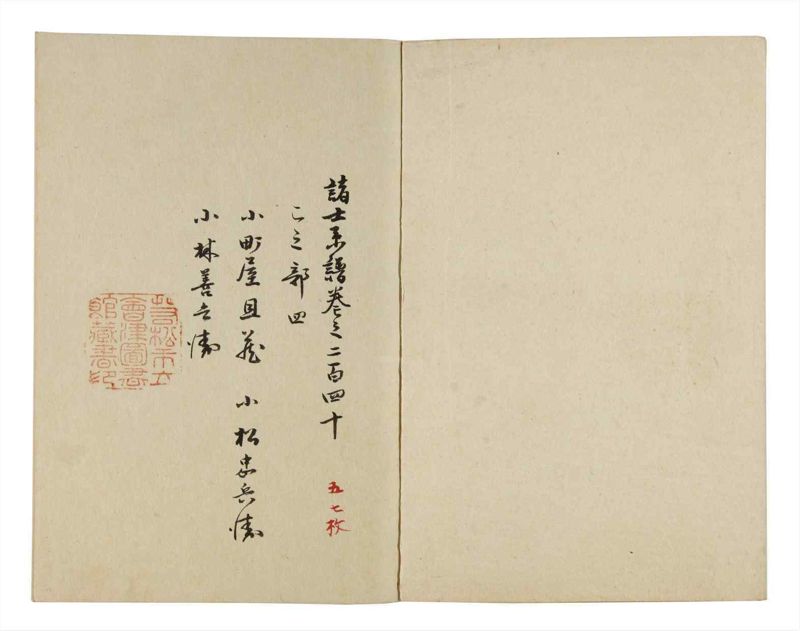 諸士系譜巻之二百四十
五七枚
こ之部四
小町屋且蔵 小松忠兵衛
小林善兵衛
若松市立
會津圖書
館藏書印